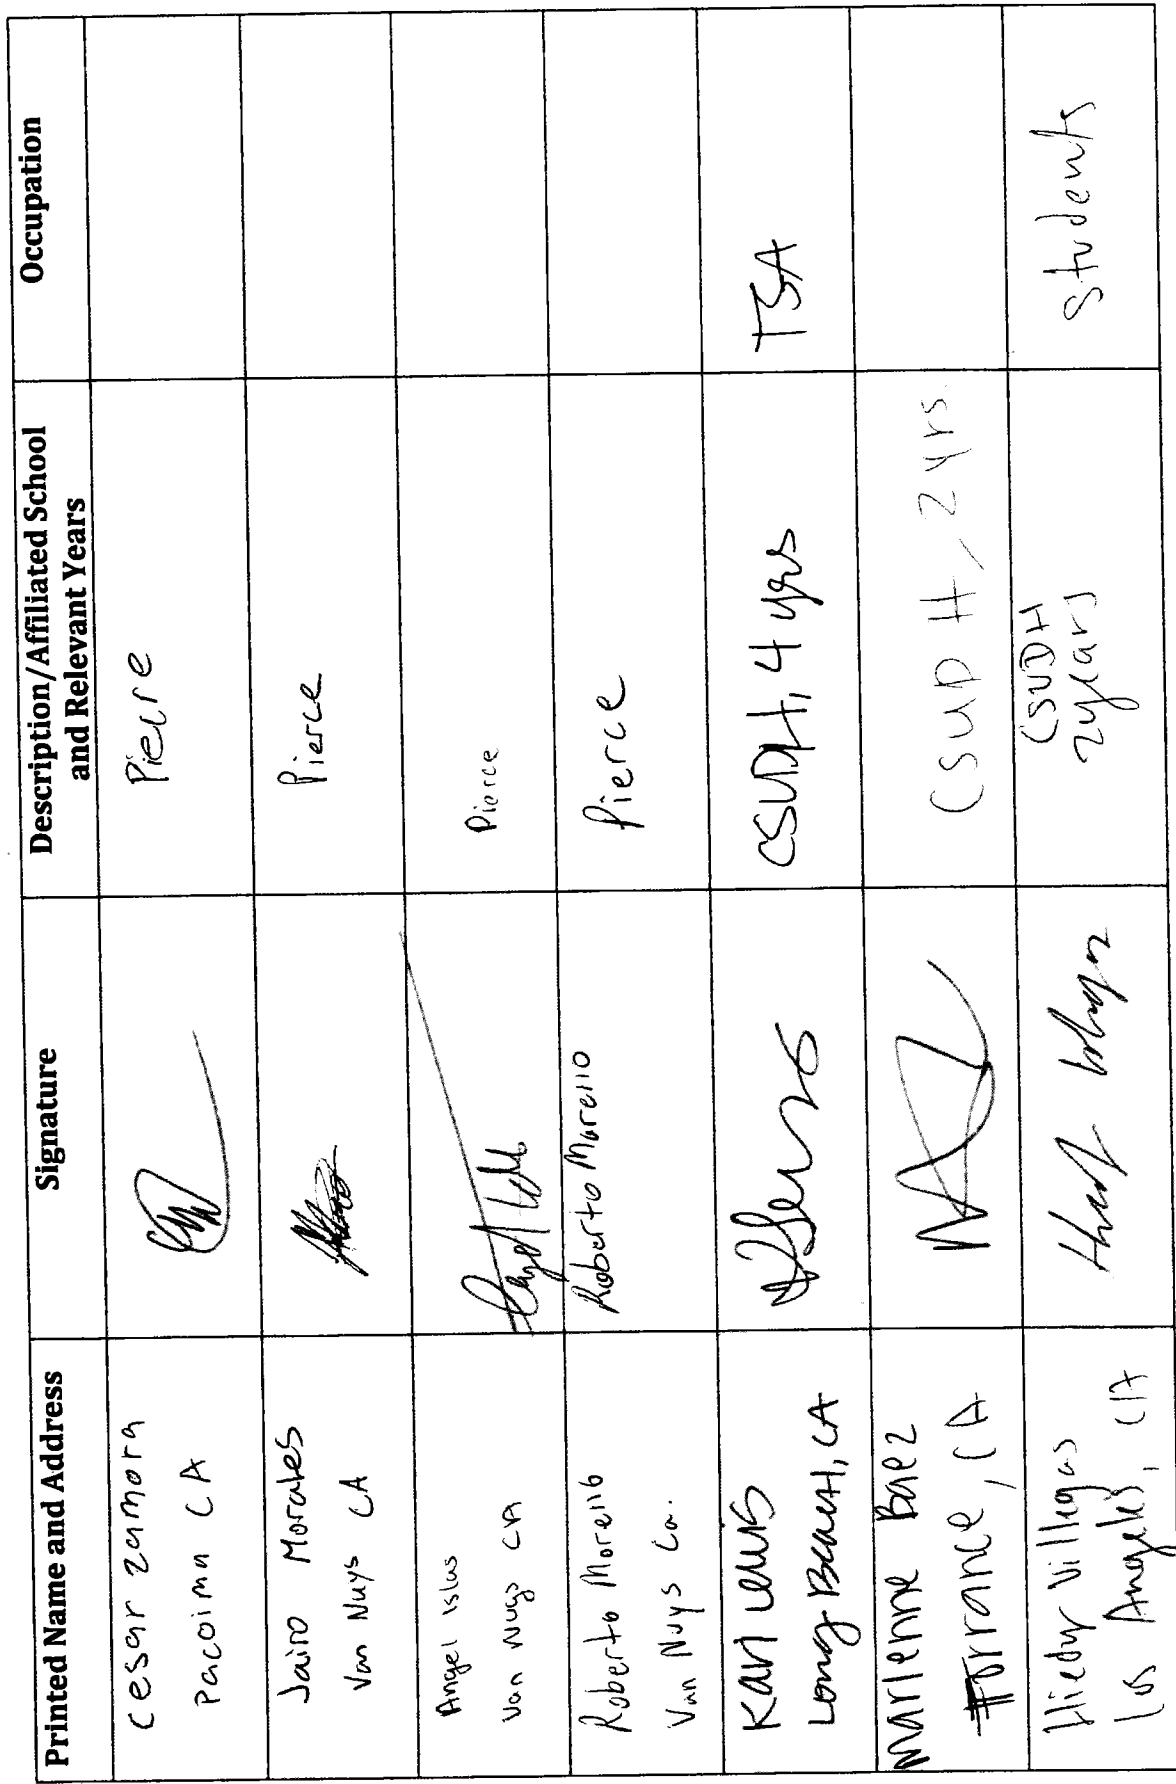 Printed Name and Address
Signature
Description/Affiliated School
and Relevant Years
Occupation
Cesar Zamora
Pacoima CA
Pierce
Jairo Morales
Van Nuys CA
Pierce
Angel Islas
Van Nuys CA
Pierce
Roberto Morello
Van Nuys Ca.
Roberto Morello
Pierce
Karl Lewis
Long Beach, CA
CSUDH, 4 yrs
TSA
Marlenne Baez
Torrance, CA
CSUDH, 2 yrs.
Hiedy Villegas
Los Angeles, CA
CSUDH
2 years
Students